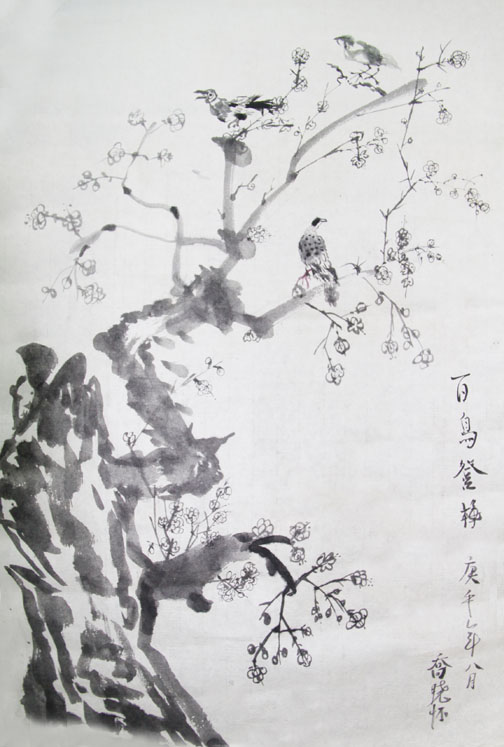 百鳥登梅 庚午年八月
喬曉怀